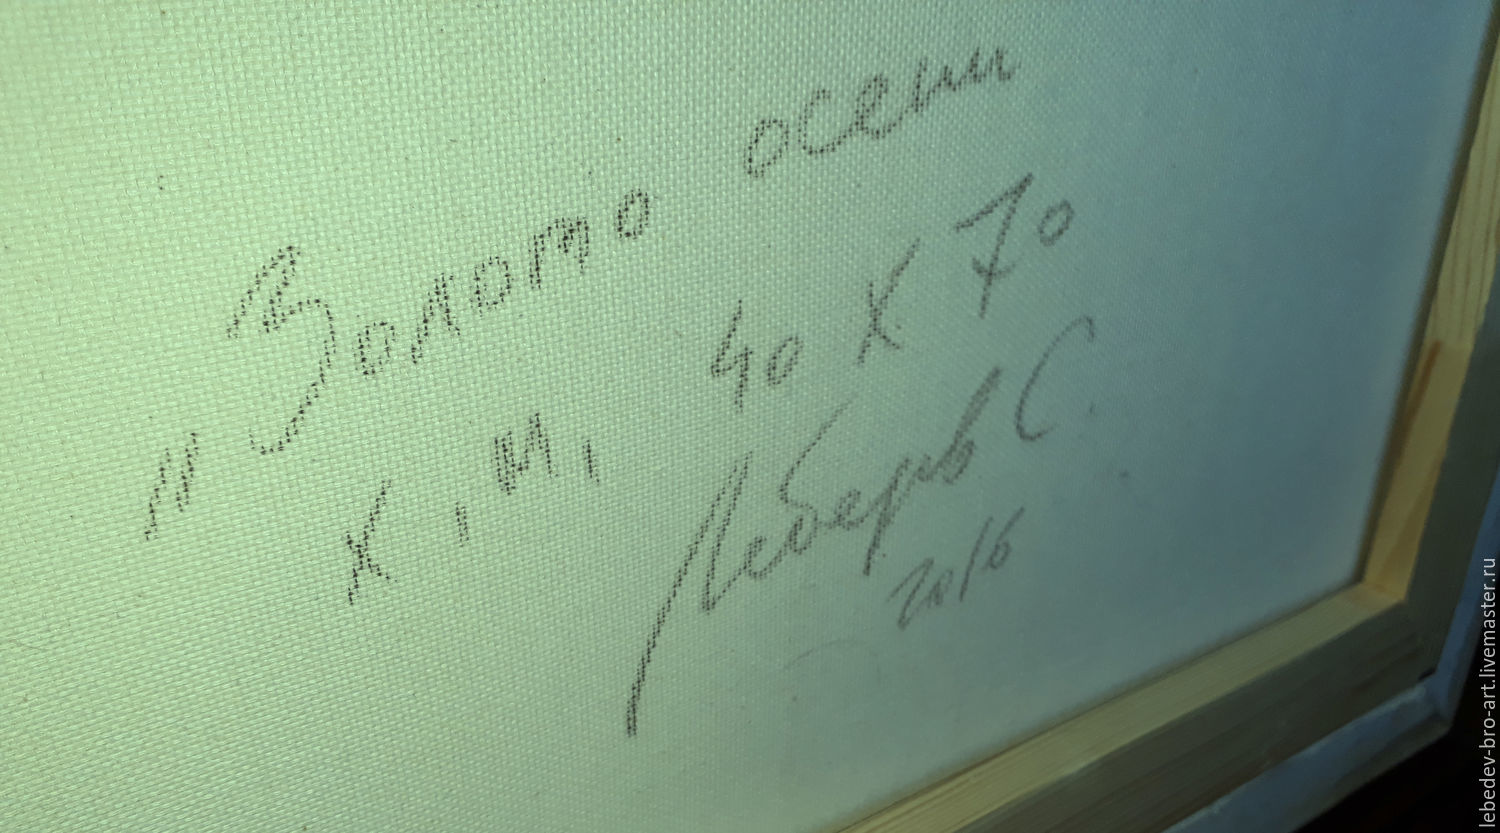 "Золото осени
х, м, 40 х 70
Лебедев С.
2016
lebedev-bro-art.livemaster.ru